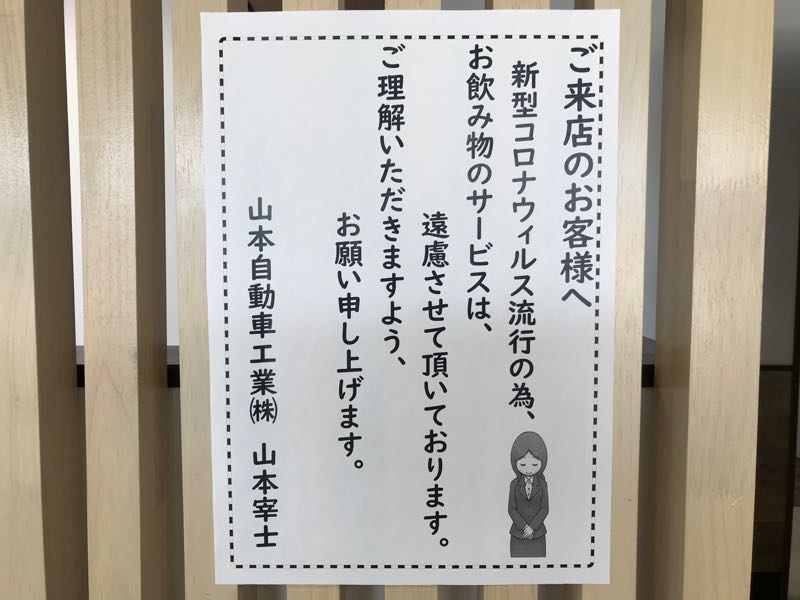 ご来店のお客様へ
新型コロナウィルス流行の為、
お飲み物のサービスは、
遠慮させて頂いております。
ご理解いただきますよう、
お願い申し上げます。
山本自動車工業㈱ 山本宰士